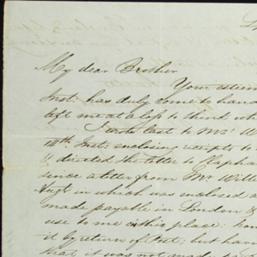 My dear Brother
Your esteem
Inst. has duly come to hand
left me at a loss to think wh
I wrote last to Mr W
14th Inst. enclosing receipts to
& directed the letter to Clapha
since a letter from Mr Will
in which was enclosed a
made payable in London &
use to me in this place. hon
it by return of Post, but han
that it was not made pa